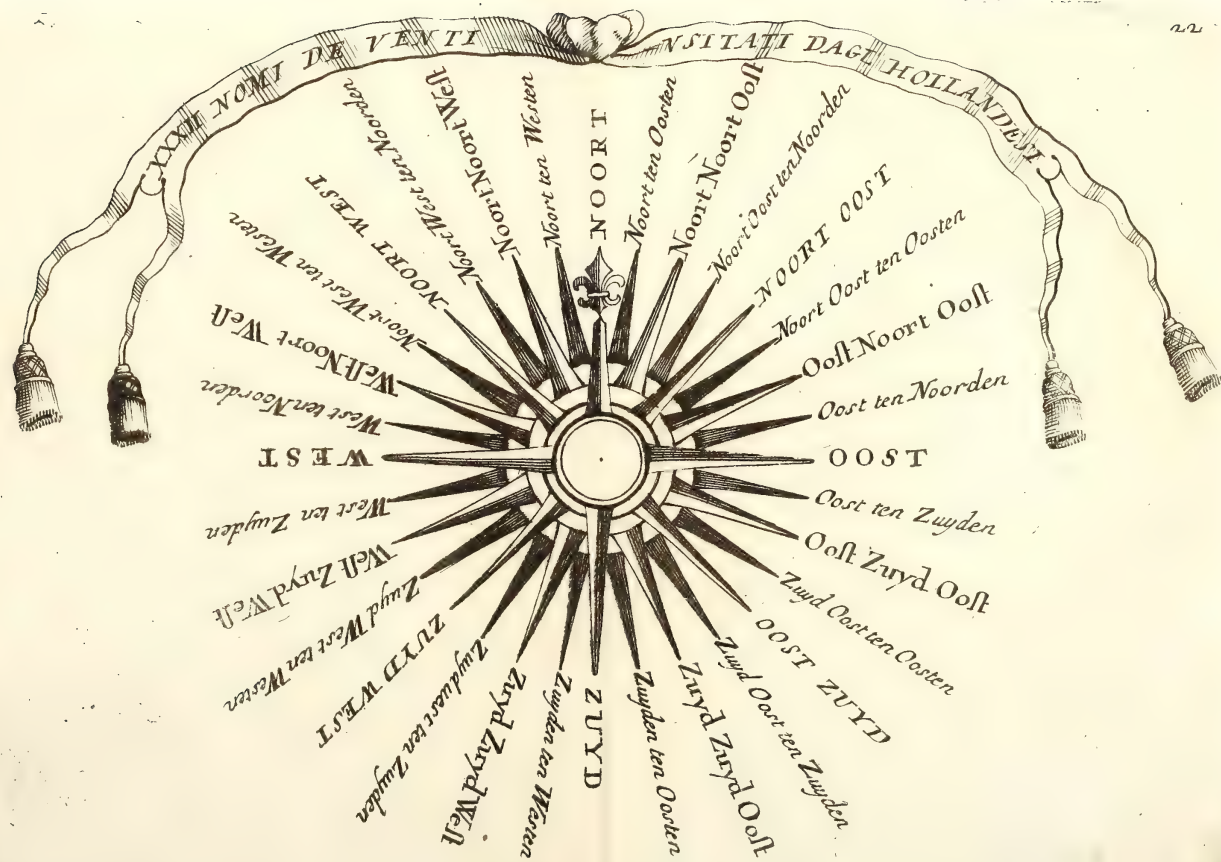 22
XXXII NOMI DE VENTI VNSITATI DAGL HOLLANDESI
NOORT
Noort ten Oosten
Noort Noort Ooſt
Noort Oost ten Noorden
NOORT OOST
Noort Oost ten Oosten
Ooſt Noort Ooſt
Oost ten Noorden
OOST
Oost ten Zuyden
Ooſt Zuyd Ooſt
Zuyd Oost ten Oosten
OOST ZUYD
Zuyd Oost ten Zuyden
Zuyd Zuyd Ooſt
Zuyden ten Oosten
ZUYD
Zuyden ten Westen
Zuyd Zuyd Weſt
Zuyd west ten Zuyden
ZUYD WEST
Zuyd West ten Westen
Weſt Zuyd Weſt
West ten Zuyden
WEST
West ten Noorden
Weſt Noort Weſt
Noort West ten Westen
NOORT WEST
Noort West ten Noorden
Noort Noort Weſt
Noort ten Westen